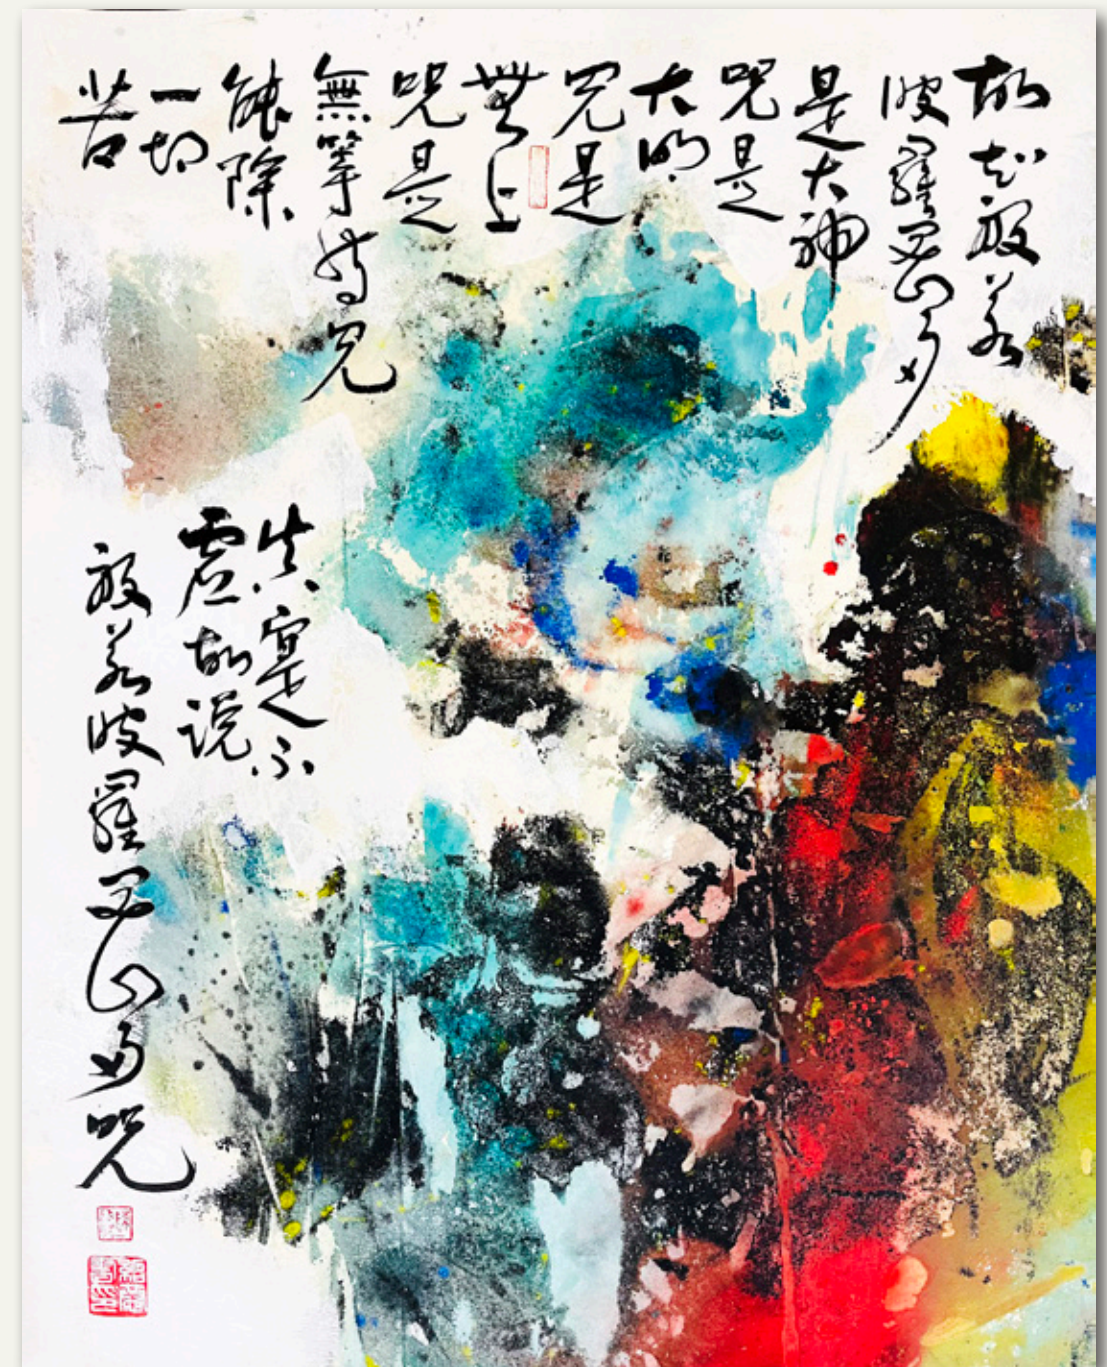 故知般若
波羅蜜多
是大神
呪是
大明
咒是
無上
呪是
無等等咒
能除
一切
苦
真實不
虛故说
般若波羅蜜多呪